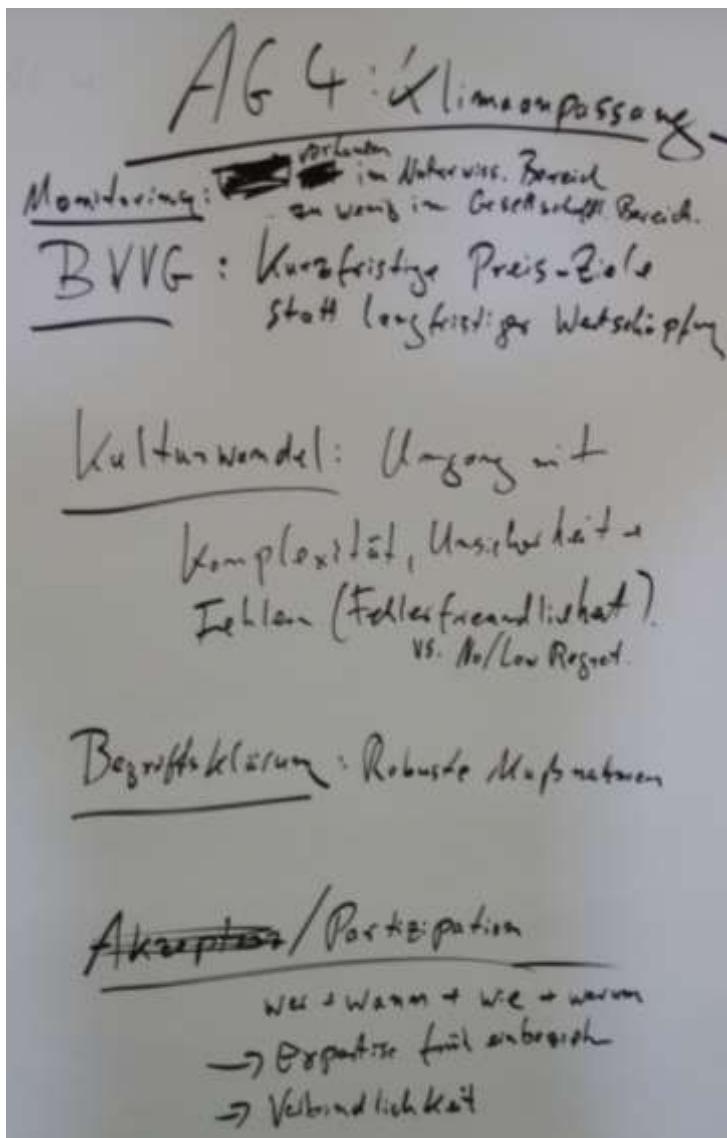 AG 4: Klimaanpassung
vorhanden
Monitoring: im Naturwiss. Bereich
zu wenig im Gesellschaftl. Bereich.
BVVG: Kurzfristige Preis-Ziele
statt langfristiger Wertschöpfung
Kulturwandel: Umgang mit
Komplexität, Unsicherheit +
Fehlern (Fehlerfreundlichkeit).
vs. No/Low Regret.
Begriffsklärung: Robuste Maßnahmen
Akzeptanz / Partizipation
wer + wann + wie + warum
→ Expertise früh einbezieh
→ Verbindlichkeit